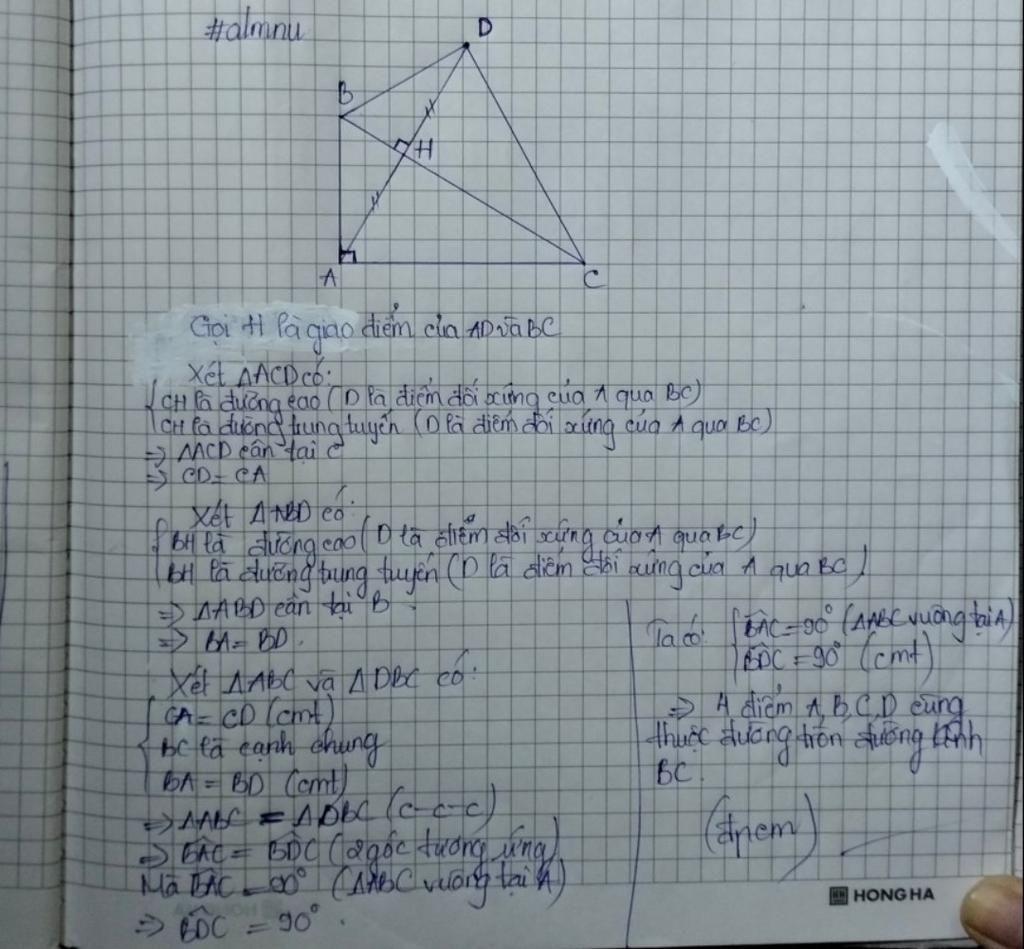 #almnu
D
B
H
A
C
Gọi H là giao điểm của AD và BC
Xét ΔACD có:
CH là đường cao (D là điểm đối xứng của A qua BC)
CH là đường trung tuyến (D là điểm đối xứng của A qua BC)
=> ΔACD cân tại C
=> CD = CA
Xét ΔABD có:
BH là đường cao (D là điểm đối xứng của A qua BC)
BH là đường trung tuyến (D là điểm đối xứng của A qua BC)
=> ΔABD cân tại B.
=> BA = BD.
Xét ΔABC và ΔDBC có:
CA = CD (cmt)
BC là cạnh chung
BA = BD (cmt)
=> ΔABC = ΔDBC (c-c-c)
=> BÂC = BD̂C (2 góc tương ứng)
Mà BÂC = 90° (ΔABC vuông tại A)
=> BD̂C = 90°.
Ta có: BÂC = 90° (ΔABC vuông tại A)
BD̂C = 90° (cmt)
=> 4 điểm A, B, C, D cùng
thuộc đường tròn đường kính
BC.
(đpcm)
HONG HA